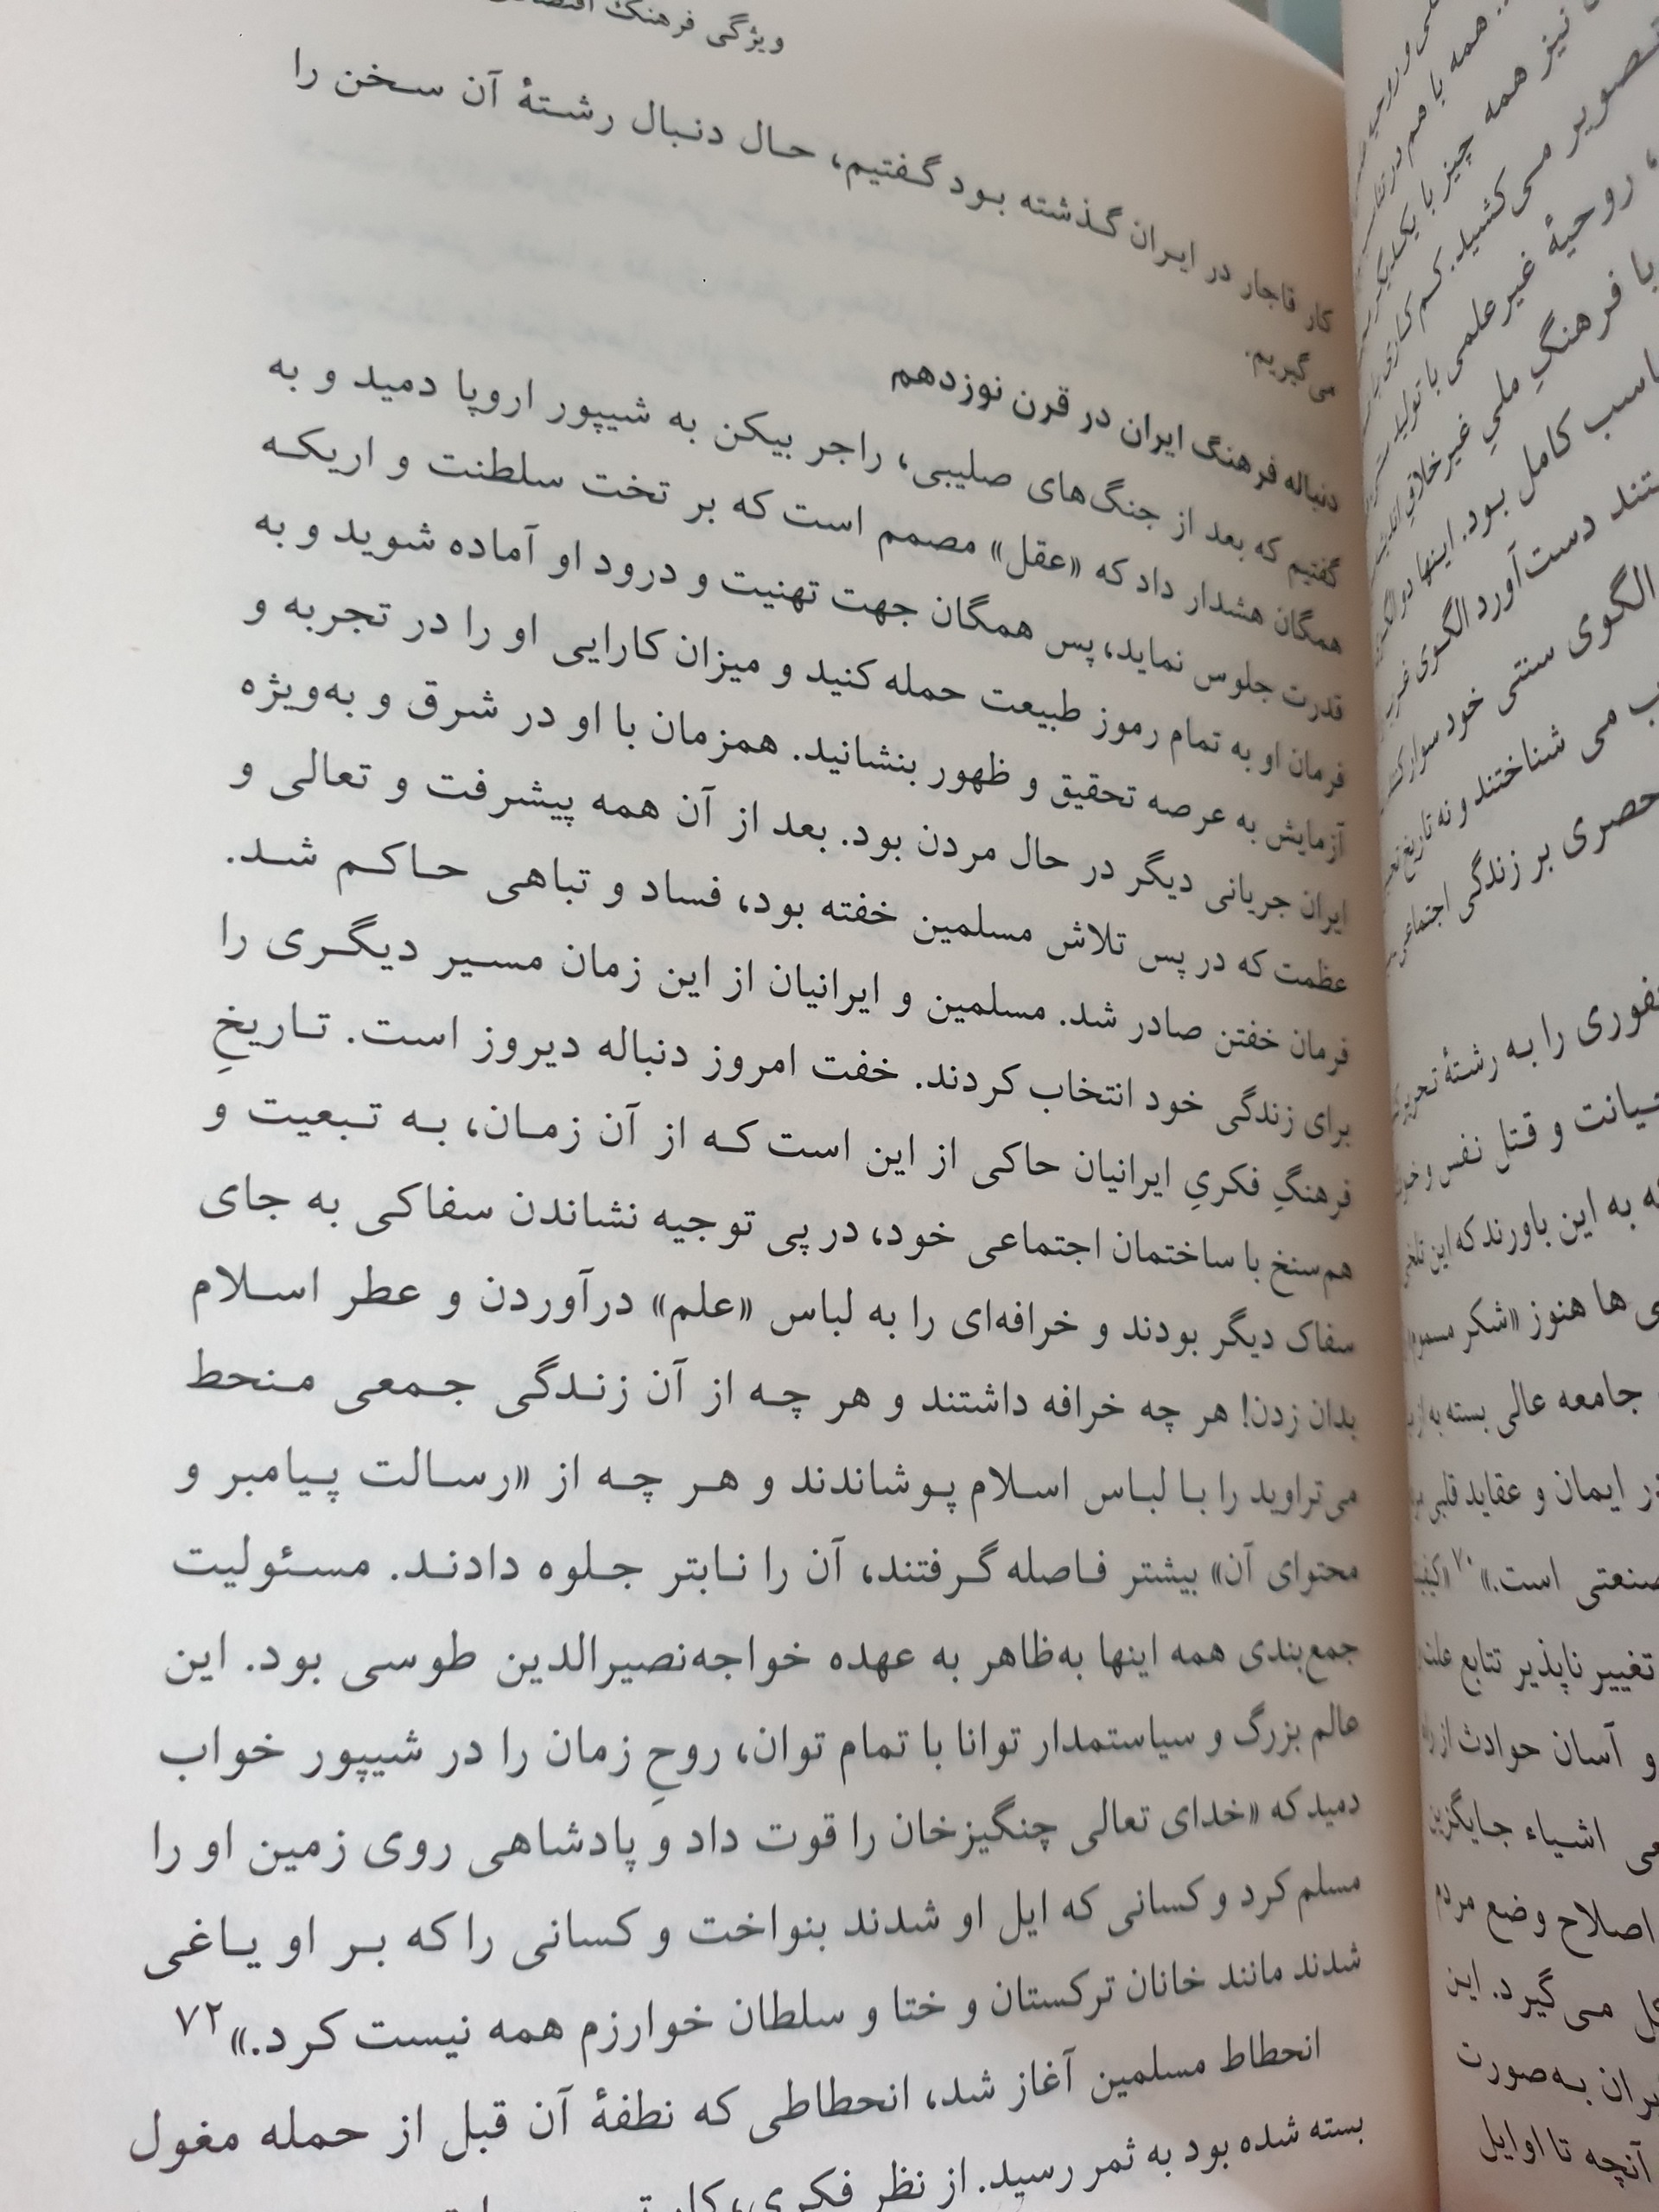 ویژگی فرهنگ
کار قاجار در ایران گذشته بود گفتیم، حال دنبال رشتهٔ آن سخن را
می‌گیریم.
دنباله فرهنگ ایران در قرن نوزدهم
گفتیم که بعد از جنگ‌های صلیبی، راجر بیکن به شیپور اروپا دمید و به
همگان هشدار داد که «عقل» مصمم است که بر تخت سلطنت و اریکه
قدرت جلوس نماید، پس همگان جهت تهنیت و درود او آماده شوید و به
فرمان او به تمام رموز طبیعت حمله کنید و میزان کارایی او را در تجربه و
آزمایش به عرصه تحقیق و ظهور بنشانید. همزمان با او در شرق و به‌ویژه
ایران جریانی دیگر در حال مردن بود. بعد از آن همه پیشرفت و تعالی و
عظمت که در پس تلاش مسلمین خفته بود، فساد و تباهی حاکم شد.
فرمان خفتن صادر شد. مسلمین و ایرانیان از این زمان مسیر دیگری را
برای زندگی خود انتخاب کردند. خفت امروز دنباله دیروز است. تاریخِ
فرهنگِ فکریِ ایرانیان حاکی از این است که از آن زمان، به تبعیت و
هم‌سنخ با ساختمان اجتماعی خود، در پی توجیه نشاندن سفاکی به جای
سفاک دیگر بودند و خرافه‌ای را به لباس «علم» درآوردن و عطر اسلام
بدان زدن! هر چه خرافه داشتند و هر چه از آن زندگی جمعی منحط
می‌تراوید را با لباس اسلام پوشاندند و هر چه از «رسالت پیامبر و
محتوای آن» بیشتر فاصله گرفتند، آن را نابتر جلوه دادند. مسئولیت
جمع‌بندی همه اینها به‌ظاهر به عهده خواجه‌نصیرالدین طوسی بود. این
عالم بزرگ و سیاستمدار توانا با تمام توان، روحِ زمان را در شیپور خواب
دمید که «خدای تعالی چنگیزخان را قوت داد و پادشاهی روی زمین او را
مسلم کرد و کسانی که ایل او شدند بنواخت و کسانی را که بر او یاغی
شدند مانند خانان ترکستان و ختا و سلطان خوارزم همه نیست کرد.»۷۲
انحطاط مسلمین آغاز شد، انحطاطی که نطفهٔ آن قبل از حمله مغول
بسته شده بود به ثمر رسید. از نظر فکری،
نیز همه چیز با
تصویر می‌کشید. کم‌کاری
روحیهٔ غیرعلمی با تولید
با فرهنگِ ملیِ غیرخلاق
کامل بود. اینها
دست‌آورد الگوی
الگوی سنتی خود سوار
می شناختند و نه تاریخ
بر زندگی اجتماعی
را به رشتهٔ
و قتل نفس و
به این باورند که این
ها هنوز «شکر
جامعه عالی بسته به
ایمان و عقاید قلبی
صنعتی است.»۷۰
تغییر ناپذیر تتابع
و آسان حوادث از
اشیاء جایگزین
اصلاح وضع مردم
می‌گیرد. این
به‌صورت
آنچه تا اوایل